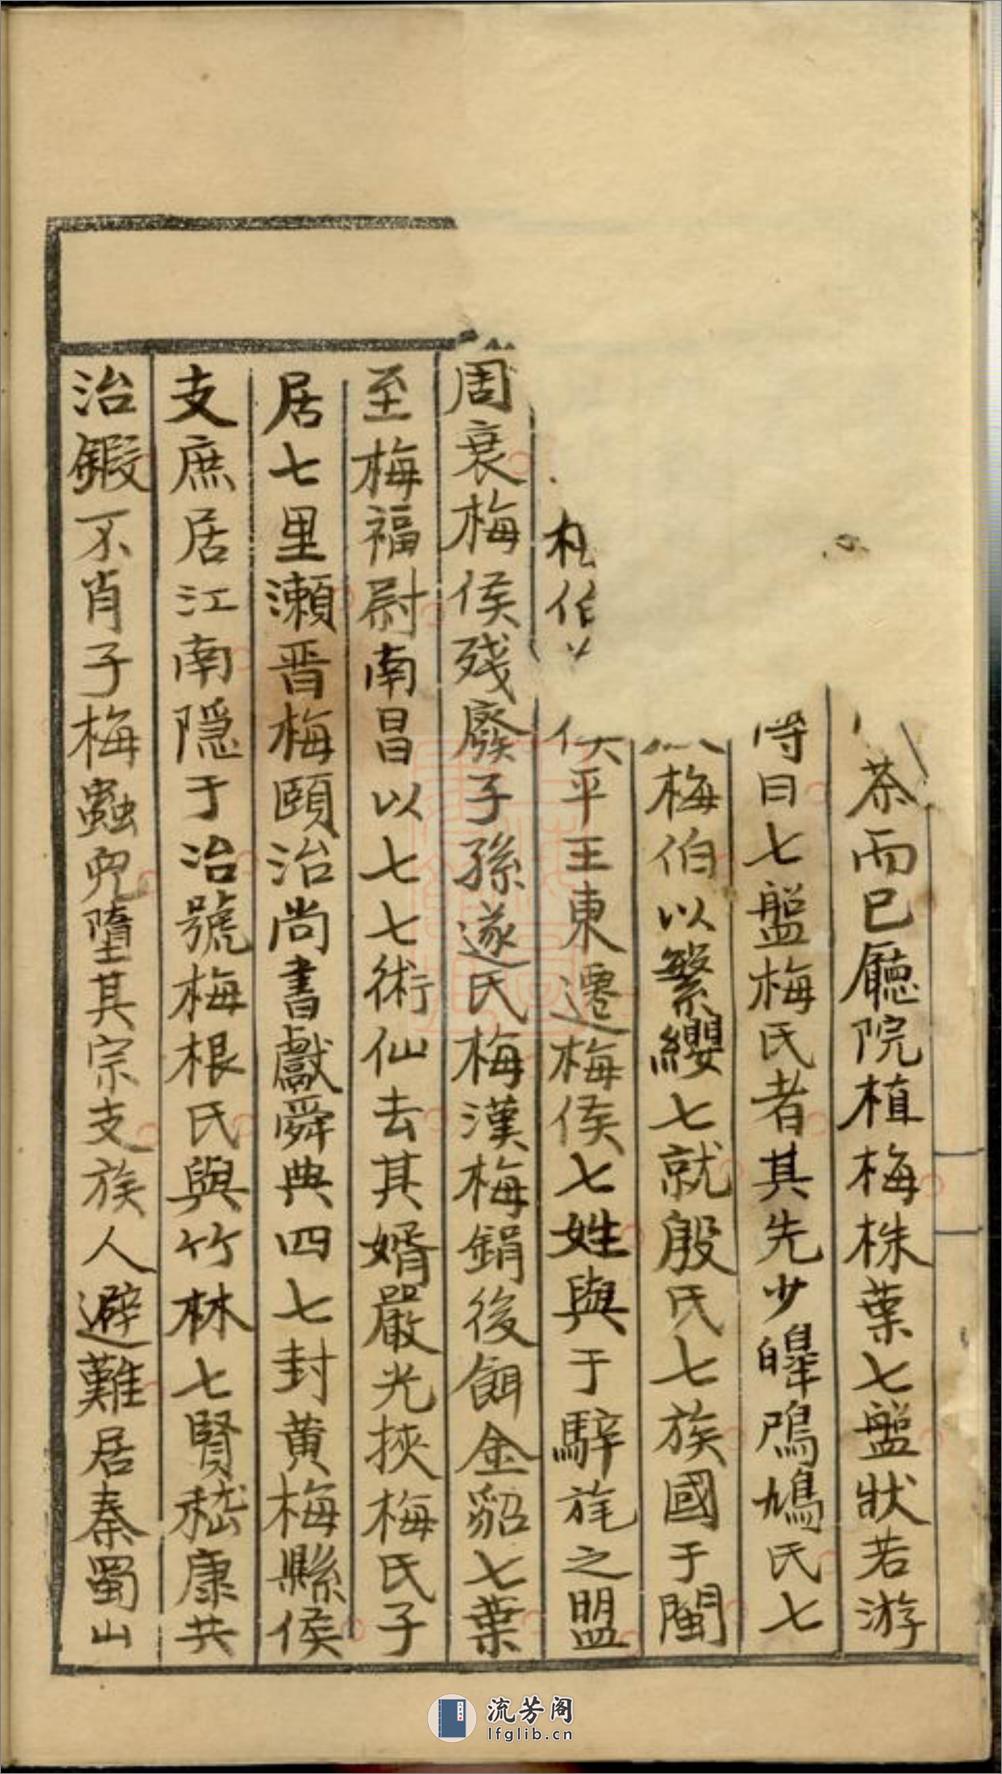 茶而已廳院植梅株葉七盤狀若游
曰七盤梅氏者其先少皞鳲鳩氏七
梅伯以繁纓七就殷氏七族國于閩
伯侯平王東遷梅侯七姓與于騂旄之盟
周衰梅侯殘廢子孫遂氏梅漢梅鋗後餌金貂七葉
至梅福尉南昌以七七術仙去其婿嚴光挾梅氏子
居七里瀨晋梅頤治尚書獻舜典四七封黄梅縣侯
支庶居江南隠于冶號梅根氏與竹林七賢嵇康共
治鍛不肖子梅蟲兒墮其宗支族人避難居秦蜀山
流芳阁
lfglib.cn